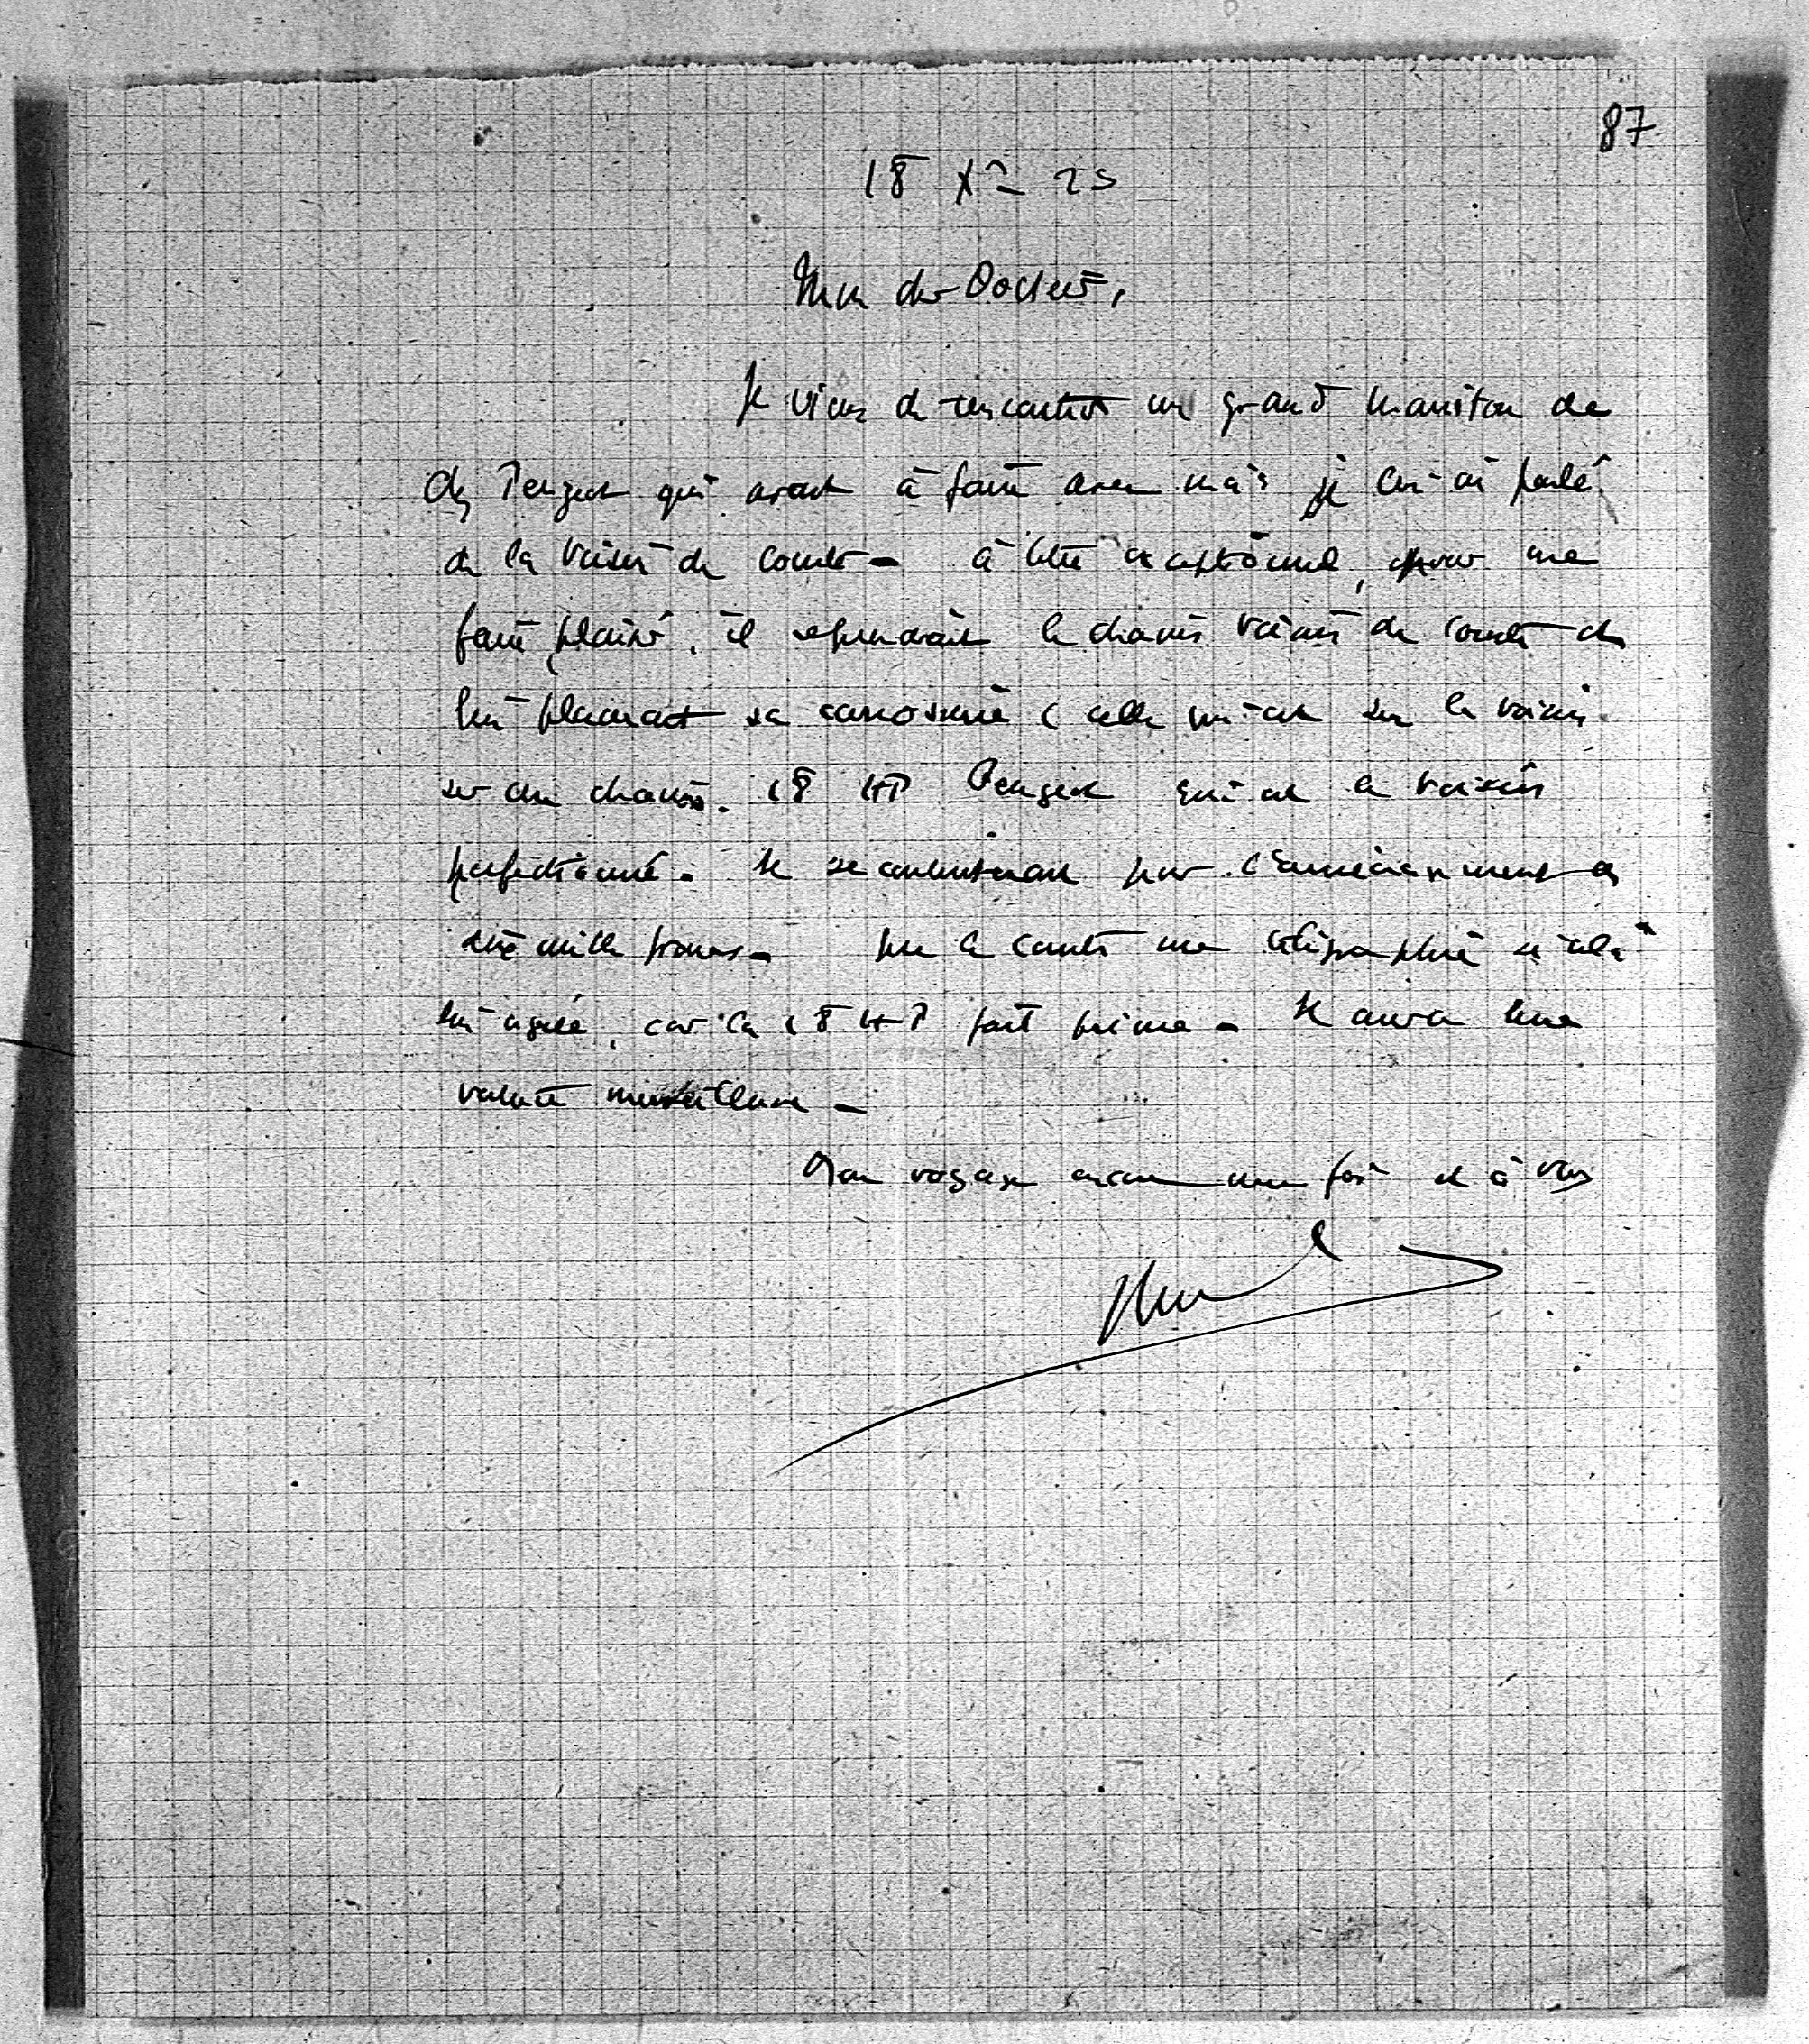 87
18 X 25
Mon cher Docteur,
Je viens de rencontrer un grand manitou de
chez Peugeot qui avait à faire avec moi je lui ai parlé
de la Voisin du comte - à titre exceptionnel, pour me
faire plaisir, il reprendrait le chassis Voisin du comte et
lui placerait sa carrosserie (celle qui est sur la voisin
sur un chassis. 18 HP Peugeot qui est la Voisin
perfectionné. Il se contenterait pour
mille francs - que le comte me télégraphie si cela
lui agrée, car la 18 HP fait prime - Il aura une
voiture merveilleuse -
Bon voyage encore une fois et à vous